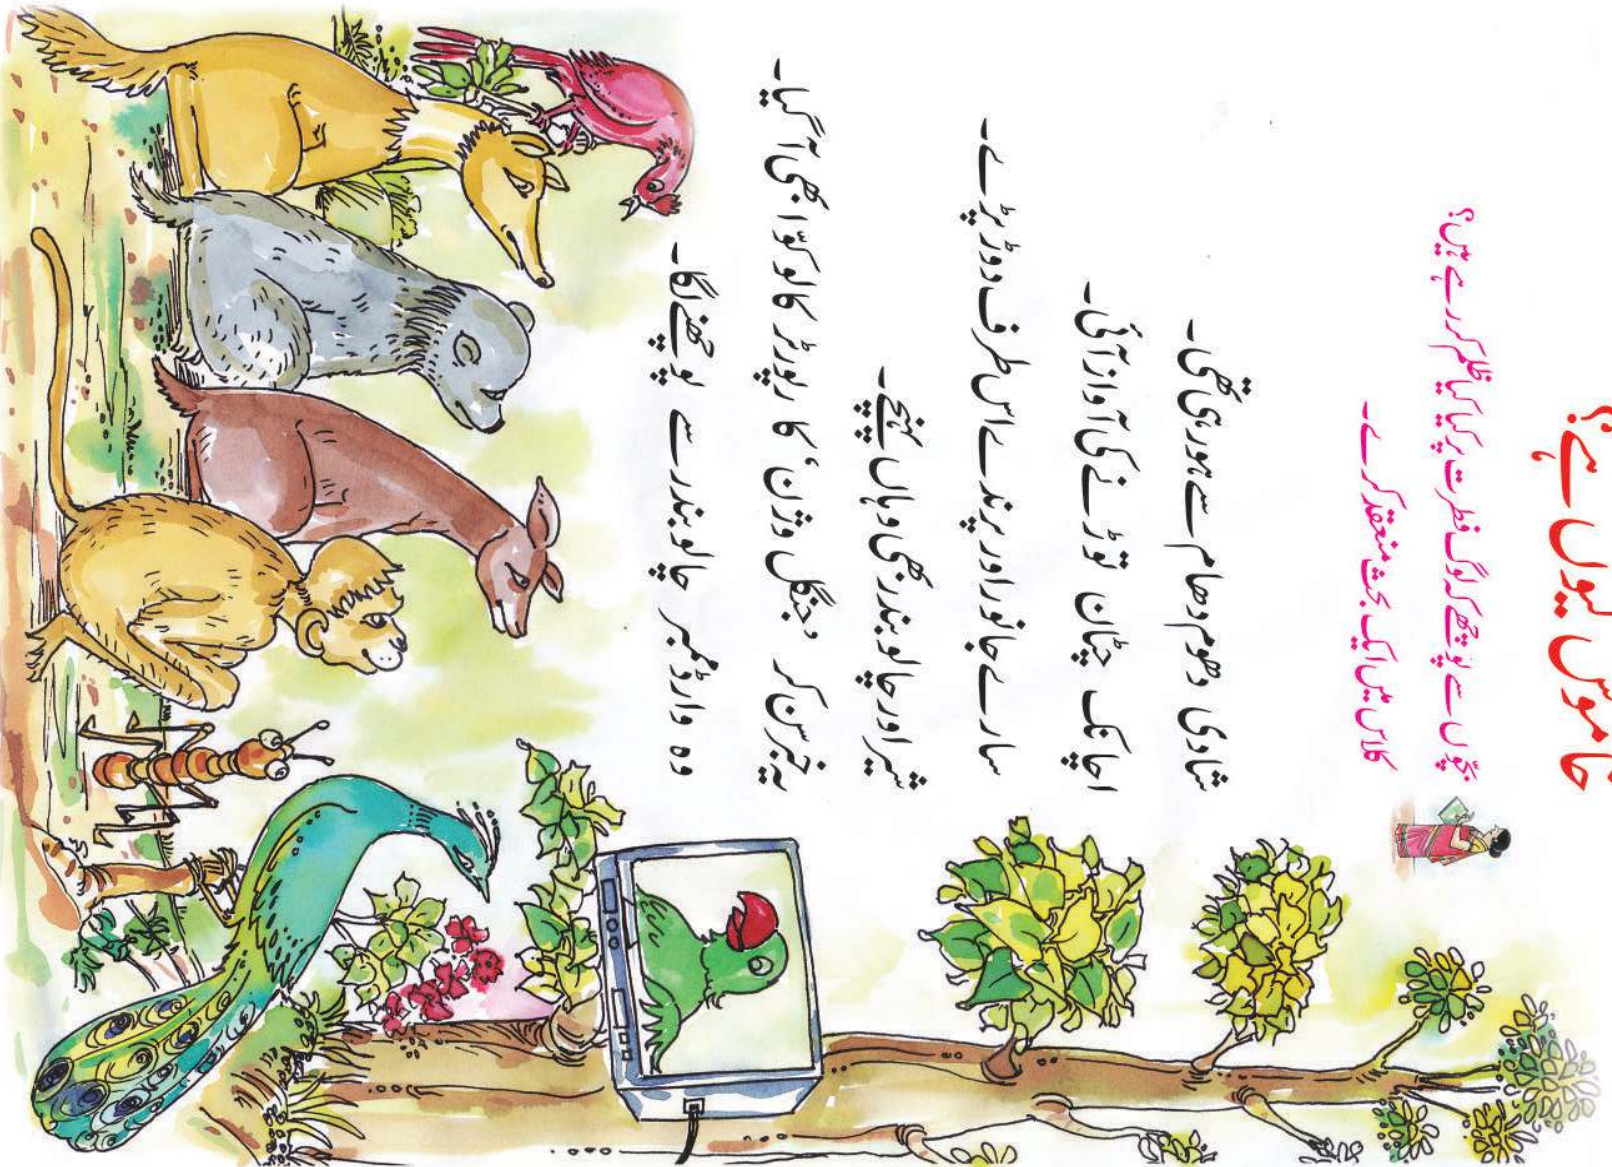 خاموش کیوں ہے؟
بچّوں سے پوچھے کہ لوگ فطرت پر کیا کیا ظلم کر رہے ہیں؟
کلاس میں ایک بحث منعقد کرے۔
شادی دھوم دھام سے ہو رہی تھی۔
اچانک چٹان توڑنے کی آواز آئی۔
سارے جانور اور پرندے اس طرف دوڑ پڑے۔
شیر اور چالو بندر بھی وہاں پہنچے۔
یہ خبر سن کر ’جنگل وژن‘ کا رپورٹر کالو کوّا بھی آ گیا۔
وہ وارڈ ممبر چالو بندر سے پوچھنے لگا۔